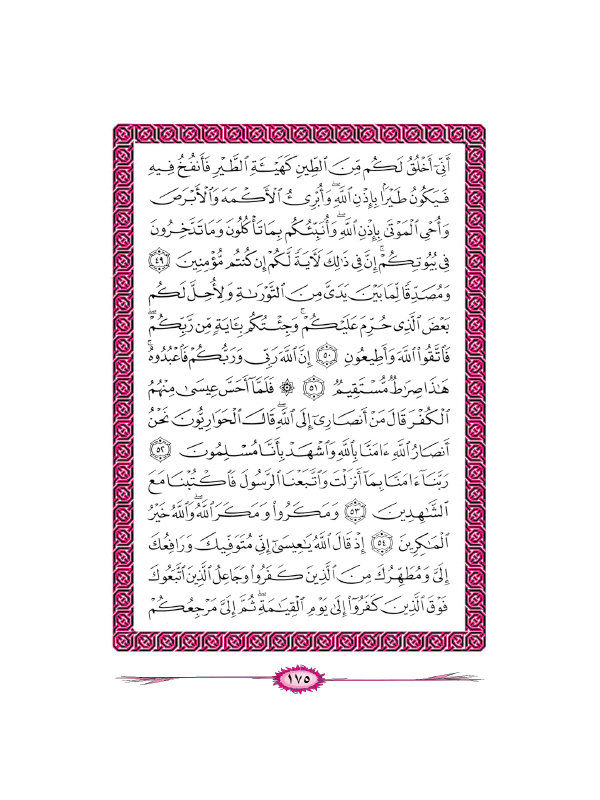 أَنِّىٓ أَخۡلُقُ لَكُم مِّنَ ٱلطِّينِ كَهَيۡـَٔةِ ٱلطَّيۡرِ فَأَنفُخُ فِيهِ
فَيَكُونُ طَيۡرَۢا بِإِذۡنِ ٱللَّهِۖ وَأُبۡرِئُ ٱلۡأَكۡمَهَ وَٱلۡأَبۡرَصَ
وَأُحۡىِ ٱلۡمَوۡتَىٰ بِإِذۡنِ ٱللَّهِۖ وَأُنَبِّئُكُم بِمَا تَأۡكُلُونَ وَمَا تَدَّخِرُونَ
فِى بُيُوتِكُمۡۚ إِنَّ فِى ذَٰلِكَ لَأٓيَةً لَّكُمۡ إِن كُنتُم مُّؤۡمِنِينَ ٤٩
وَمُصَدِّقًا لِّمَا بَيۡنَ يَدَىَّ مِنَ ٱلتَّوۡرَىٰةِ وَلِأُحِلَّ لَكُم
بَعۡضَ ٱلَّذِى حُرِّمَ عَلَيۡكُمۡۚ وَجِئۡتُكُم بِـَٔايَةٍ مِّن رَّبِّكُمۡ
فَٱتَّقُواْ ٱللَّهَ وَأَطِيعُونِ ٥٠ إِنَّ ٱللَّهَ رَبِّى وَرَبُّكُمۡ فَٱعۡبُدُوهُۚ
هَٰذَا صِرَٰطٌ مُّسۡتَقِيمٌ ٥١ ۞ فَلَمَّآ أَحَسَّ عِيسَىٰ مِنۡهُمُ
ٱلۡكُفۡرَ قَالَ مَنۡ أَنصَارِىٓ إِلَى ٱللَّهِۖ قَالَ ٱلۡحَوَارِيُّونَ نَحۡنُ
أَنصَارُ ٱللَّهِ ءَامَنَّا بِٱللَّهِ وَٱشۡهَدۡ بِأَنَّا مُسۡلِمُونَ ٥٢
رَبَّنَآ ءَامَنَّا بِمَآ أَنزَلۡتَ وَٱتَّبَعۡنَا ٱلرَّسُولَ فَٱكۡتُبۡنَا مَعَ
ٱلشَّٰهِدِينَ ٥٣ وَمَكَرُواْ وَمَكَرَ ٱللَّهُۖ وَٱللَّهُ خَيۡرُ
ٱلۡمَٰكِرِينَ ٥٤ إِذۡ قَالَ ٱللَّهُ يَٰعِيسَىٰٓ إِنِّى مُتَوَفِّيكَ وَرَافِعُكَ
إِلَىَّ وَمُطَهِّرُكَ مِنَ ٱلَّذِينَ كَفَرُواْ وَجَاعِلُ ٱلَّذِينَ ٱتَّبَعُوكَ
فَوۡقَ ٱلَّذِينَ كَفَرُوٓاْ إِلَىٰ يَوۡمِ ٱلۡقِيَٰمَةِۖ ثُمَّ إِلَىَّ مَرۡجِعُكُمۡ
١٧٥